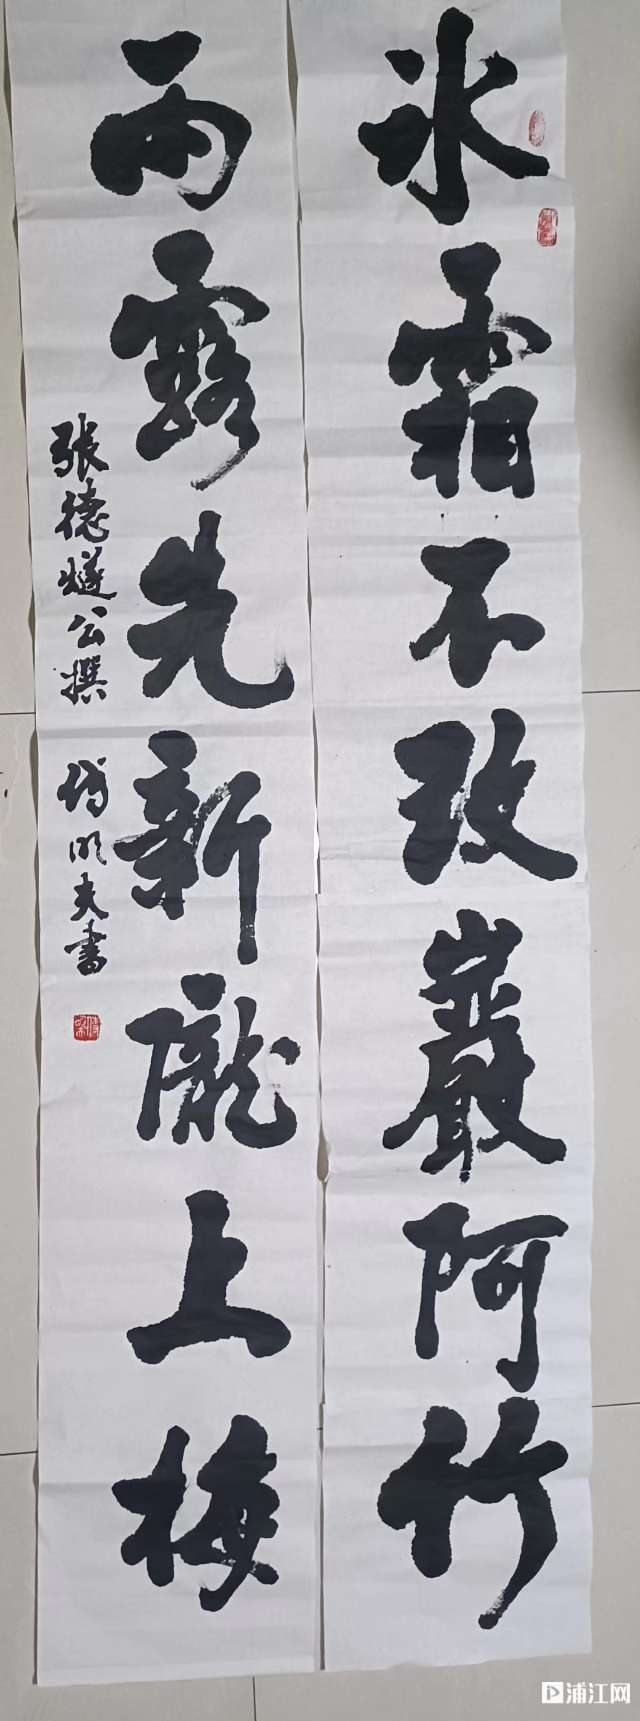 冰霜不改巖阿竹
雨露先新隴上梅
张德燧公撰
傅明夫書
浦江网